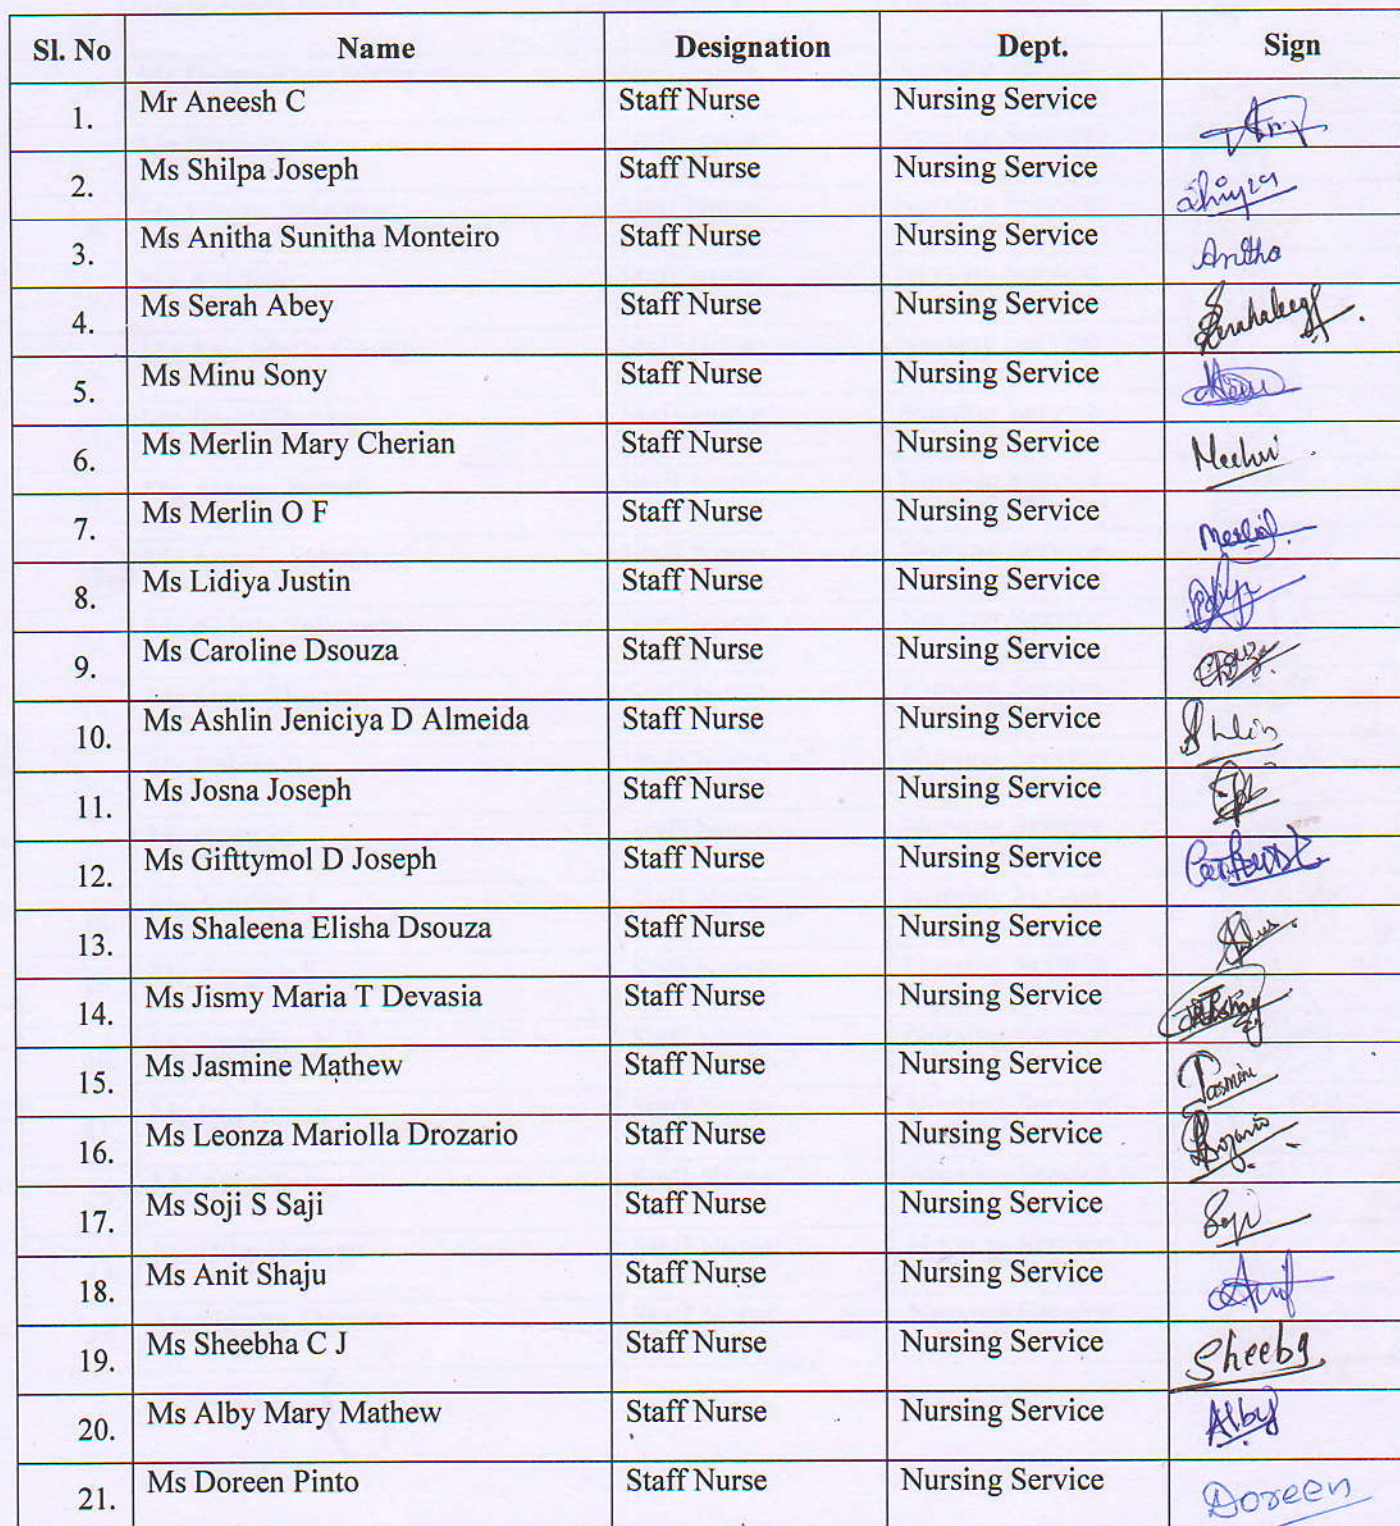 Sl. No Name Designation Dept. Sign
1. Mr Aneesh C Staff Nurse Nursing Service
2. Ms Shilpa Joseph Staff Nurse Nursing Service
3. Ms Anitha Sunitha Monteiro Staff Nurse Nursing Service Anitha
4. Ms Serah Abey Staff Nurse Nursing Service
5. Ms Minu Sony Staff Nurse Nursing Service
6. Ms Merlin Mary Cherian Staff Nurse Nursing Service
7. Ms Merlin O F Staff Nurse Nursing Service
8. Ms Lidiya Justin Staff Nurse Nursing Service
9. Ms Caroline Dsouza Staff Nurse Nursing Service
10. Ms Ashlin Jeniciya D Almeida Staff Nurse Nursing Service
11. Ms Josna Joseph Staff Nurse Nursing Service
12. Ms Gifttymol D Joseph Staff Nurse Nursing Service
13. Ms Shaleena Elisha Dsouza Staff Nurse Nursing Service
14. Ms Jismy Maria T Devasia Staff Nurse Nursing Service
15. Ms Jasmine Mathew Staff Nurse Nursing Service Jasmine
16. Ms Leonza Mariolla Drozario Staff Nurse Nursing Service
17. Ms Soji S Saji Staff Nurse Nursing Service Soji
18. Ms Anit Shaju Staff Nurse Nursing Service
19. Ms Sheebha C J Staff Nurse Nursing Service Sheeba
20. Ms Alby Mary Mathew Staff Nurse Nursing Service Alby
21. Ms Doreen Pinto Staff Nurse Nursing Service Doreen